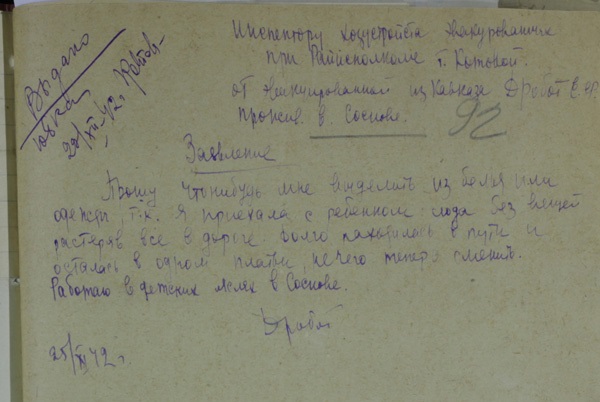 Выдано
юбка
25/XII-42 г.
Инспектору хозустройства эвакурованных
при Райисполкоме т. Котовой.
от эвакуированной из Кавказа Дробот Е.
прожив. в Соснове.
92
Заявление
Прошу чтонибудь мне выделить из белья или
одежды, т.к. я приехала с ребенком сюда без вещей
растеряв все в дороге. Долго находились в пути и
осталась в одном платьи, нечего теперь сменить.
Работаю в детских яслях в Соснове.
Дробот
25/XI 42 г.